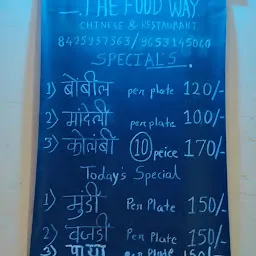 THE FOOD WAY
CHINESE & RESTAURANT
8425937363/9653145060
SPECIALS.
1) बोंबील per plate 120/-
2) मांदेली per plate 100/-
3) कोलंबी 10 peice 170/-
Today's Special
1) मुंडी Per Plate 150/-
2) वजडी Per Plate 150/-
3) पाया per Plate 150/-